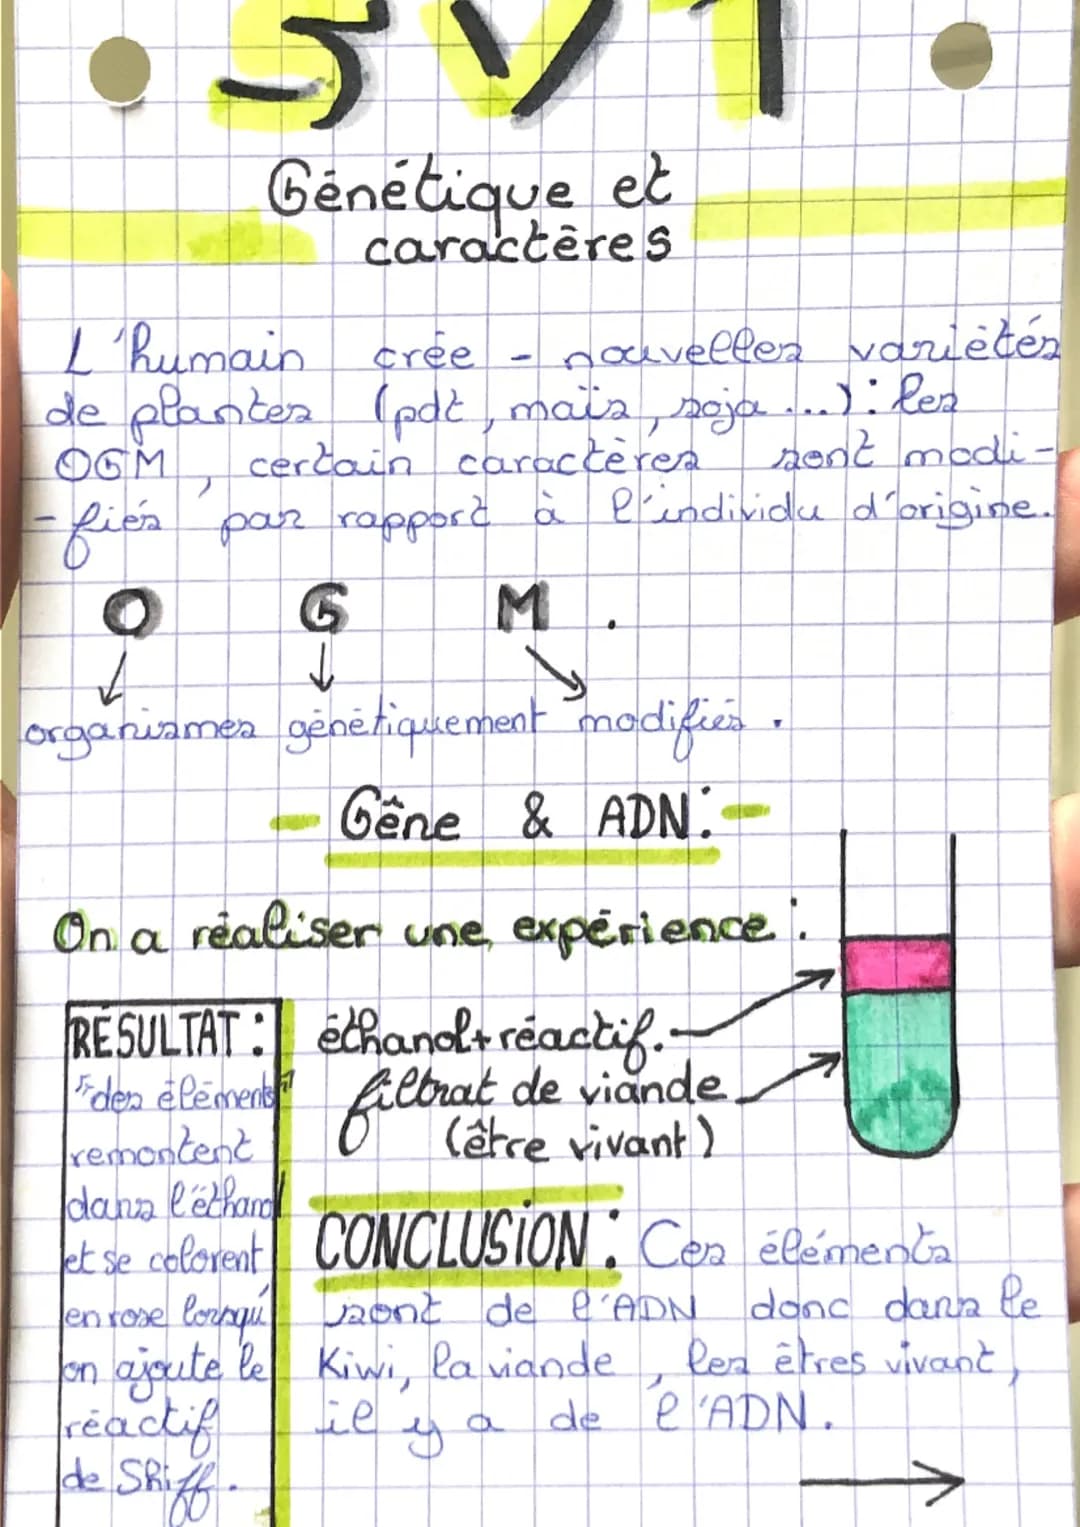 SVT
Génétique et
caractères
L'humain crée - nouvelles variétés
de plantes (pdt, maïs, soja ...) : les
OGM, certain caractères sont modi-
-fiés par rapport à l'individu d'origine.
O G M .
organismes génétiquement modifiés .
- Gêne & ADN: -
On a réaliser une expérience :
éthanol + réactif.
filtrat de viande
(être vivant)
RÉSULTAT :
"des éléments"
remontent
dans l'éthanol
et se colorent
en rose lorsqu'
on ajoute le
réactif
de Shiff.
CONCLUSION : Ces éléments
sont de l'ADN donc dans le
Kiwi, la viande, les êtres vivant,
il y a de l'ADN.